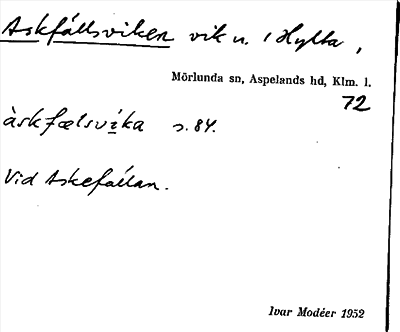 Askfällsviken vik u. Hylta,
Mörlunda sn, Aspelands hd, Klm. l.
72
àskfælsvíka s. 84.
Vid Askefällan.
Ivar Modéer 1952